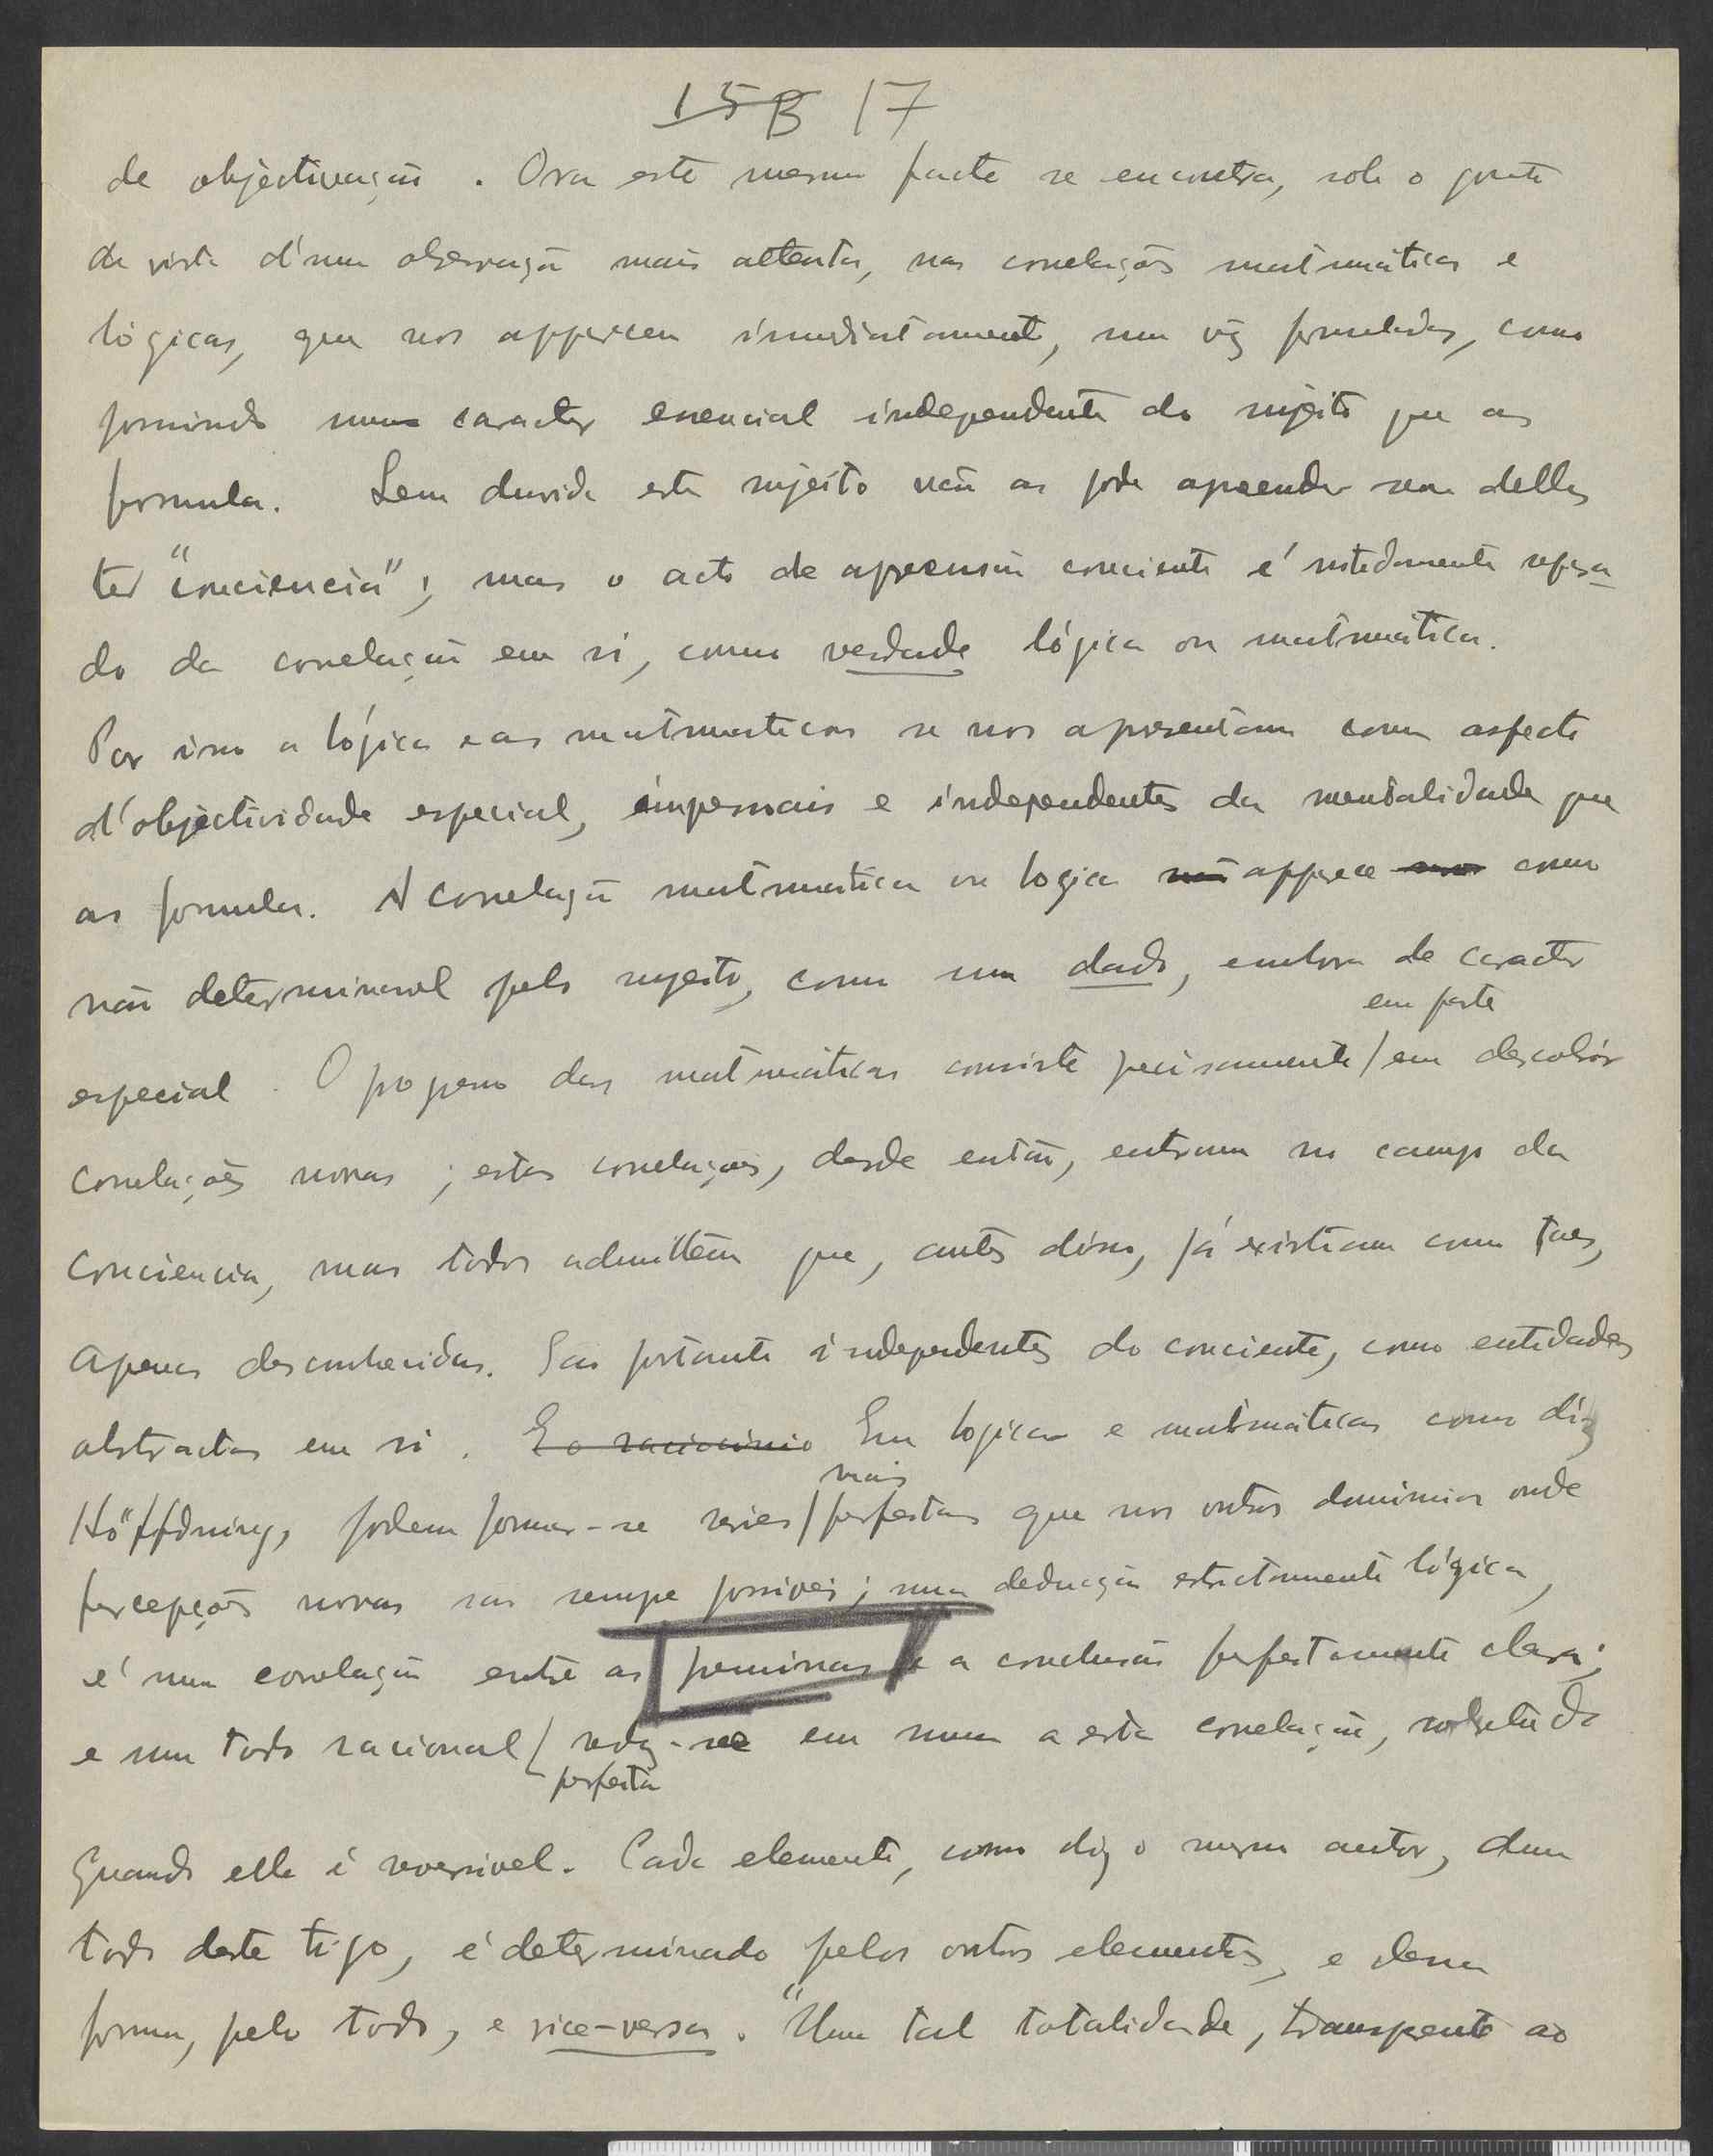 15B 17
de objectivação. Ora este mesmo facto se encontra, sob o ponto
de vista d'uma observação mais attenta, nas correlações matematicas e
lógicas, que nos apparecem immediatamente, uma vez formuladas, como
possuindo um caracter essencial independente do sujeito que as
formula. Sem duvida este sujeito não as pode apreender sem dellas
ter "conciencia"; mas o acto de apreensão conciente é nitidamente separa
do da correlação em si, como verdade lógica ou matematica.
Por isso a lógica e as matematicas se nos apresentam com aspecto
d'objectividade especial, impessoais e independentes da mentalidade que
as formula. A correlação matematica ou logica não apparece como
não determinavel pelo sujeito, como um dado, embora de caracter
em parte
especial. O progresso das matematicas consiste precisamente / em descobrir
correlações novas; estas correlações, desde então, entram no campo da
conciencia, mas todos admittem que, antes disso, já existiam como taes,
apenas desconhecidas. São portanto independentes do conciente, como entidades
abstractas em si. E o raciocinio Em logica e matematicas como diz
mais
Höffdning, podem formar-se series / perfeitas que nos outros dominios onde
percepções novas sao sempre possiveis; uma deducção estrictamente lógica,
é uma correlação entre as premissas e a conclusão perfeitamente clara;
e um todo racional / reduz-se em summa a esta correlação, sobretudo
perfeito
quando ella é reversivel. Cada elemento, como diz o mesmo autor, dum
todo deste tipo, é determinado pelos outros elementos, e dessa
forma, pelo todo, e vice-versa. "Uma tal totalidade, transparente ao